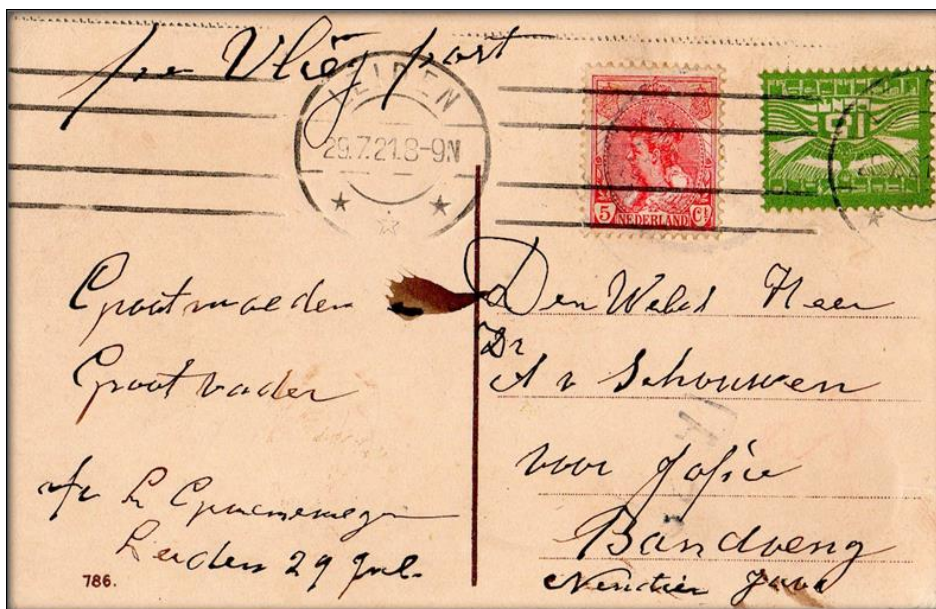 per Vliegpost
LEIDEN
29.7.21.8-9N
5 NEDERLAND Ct
Grootmoeder
Grootvader
Leiden 29 Jul.
786.
Den Weled Heer
Dr
A v Schouwen
voor Josie
Bandoeng
Java